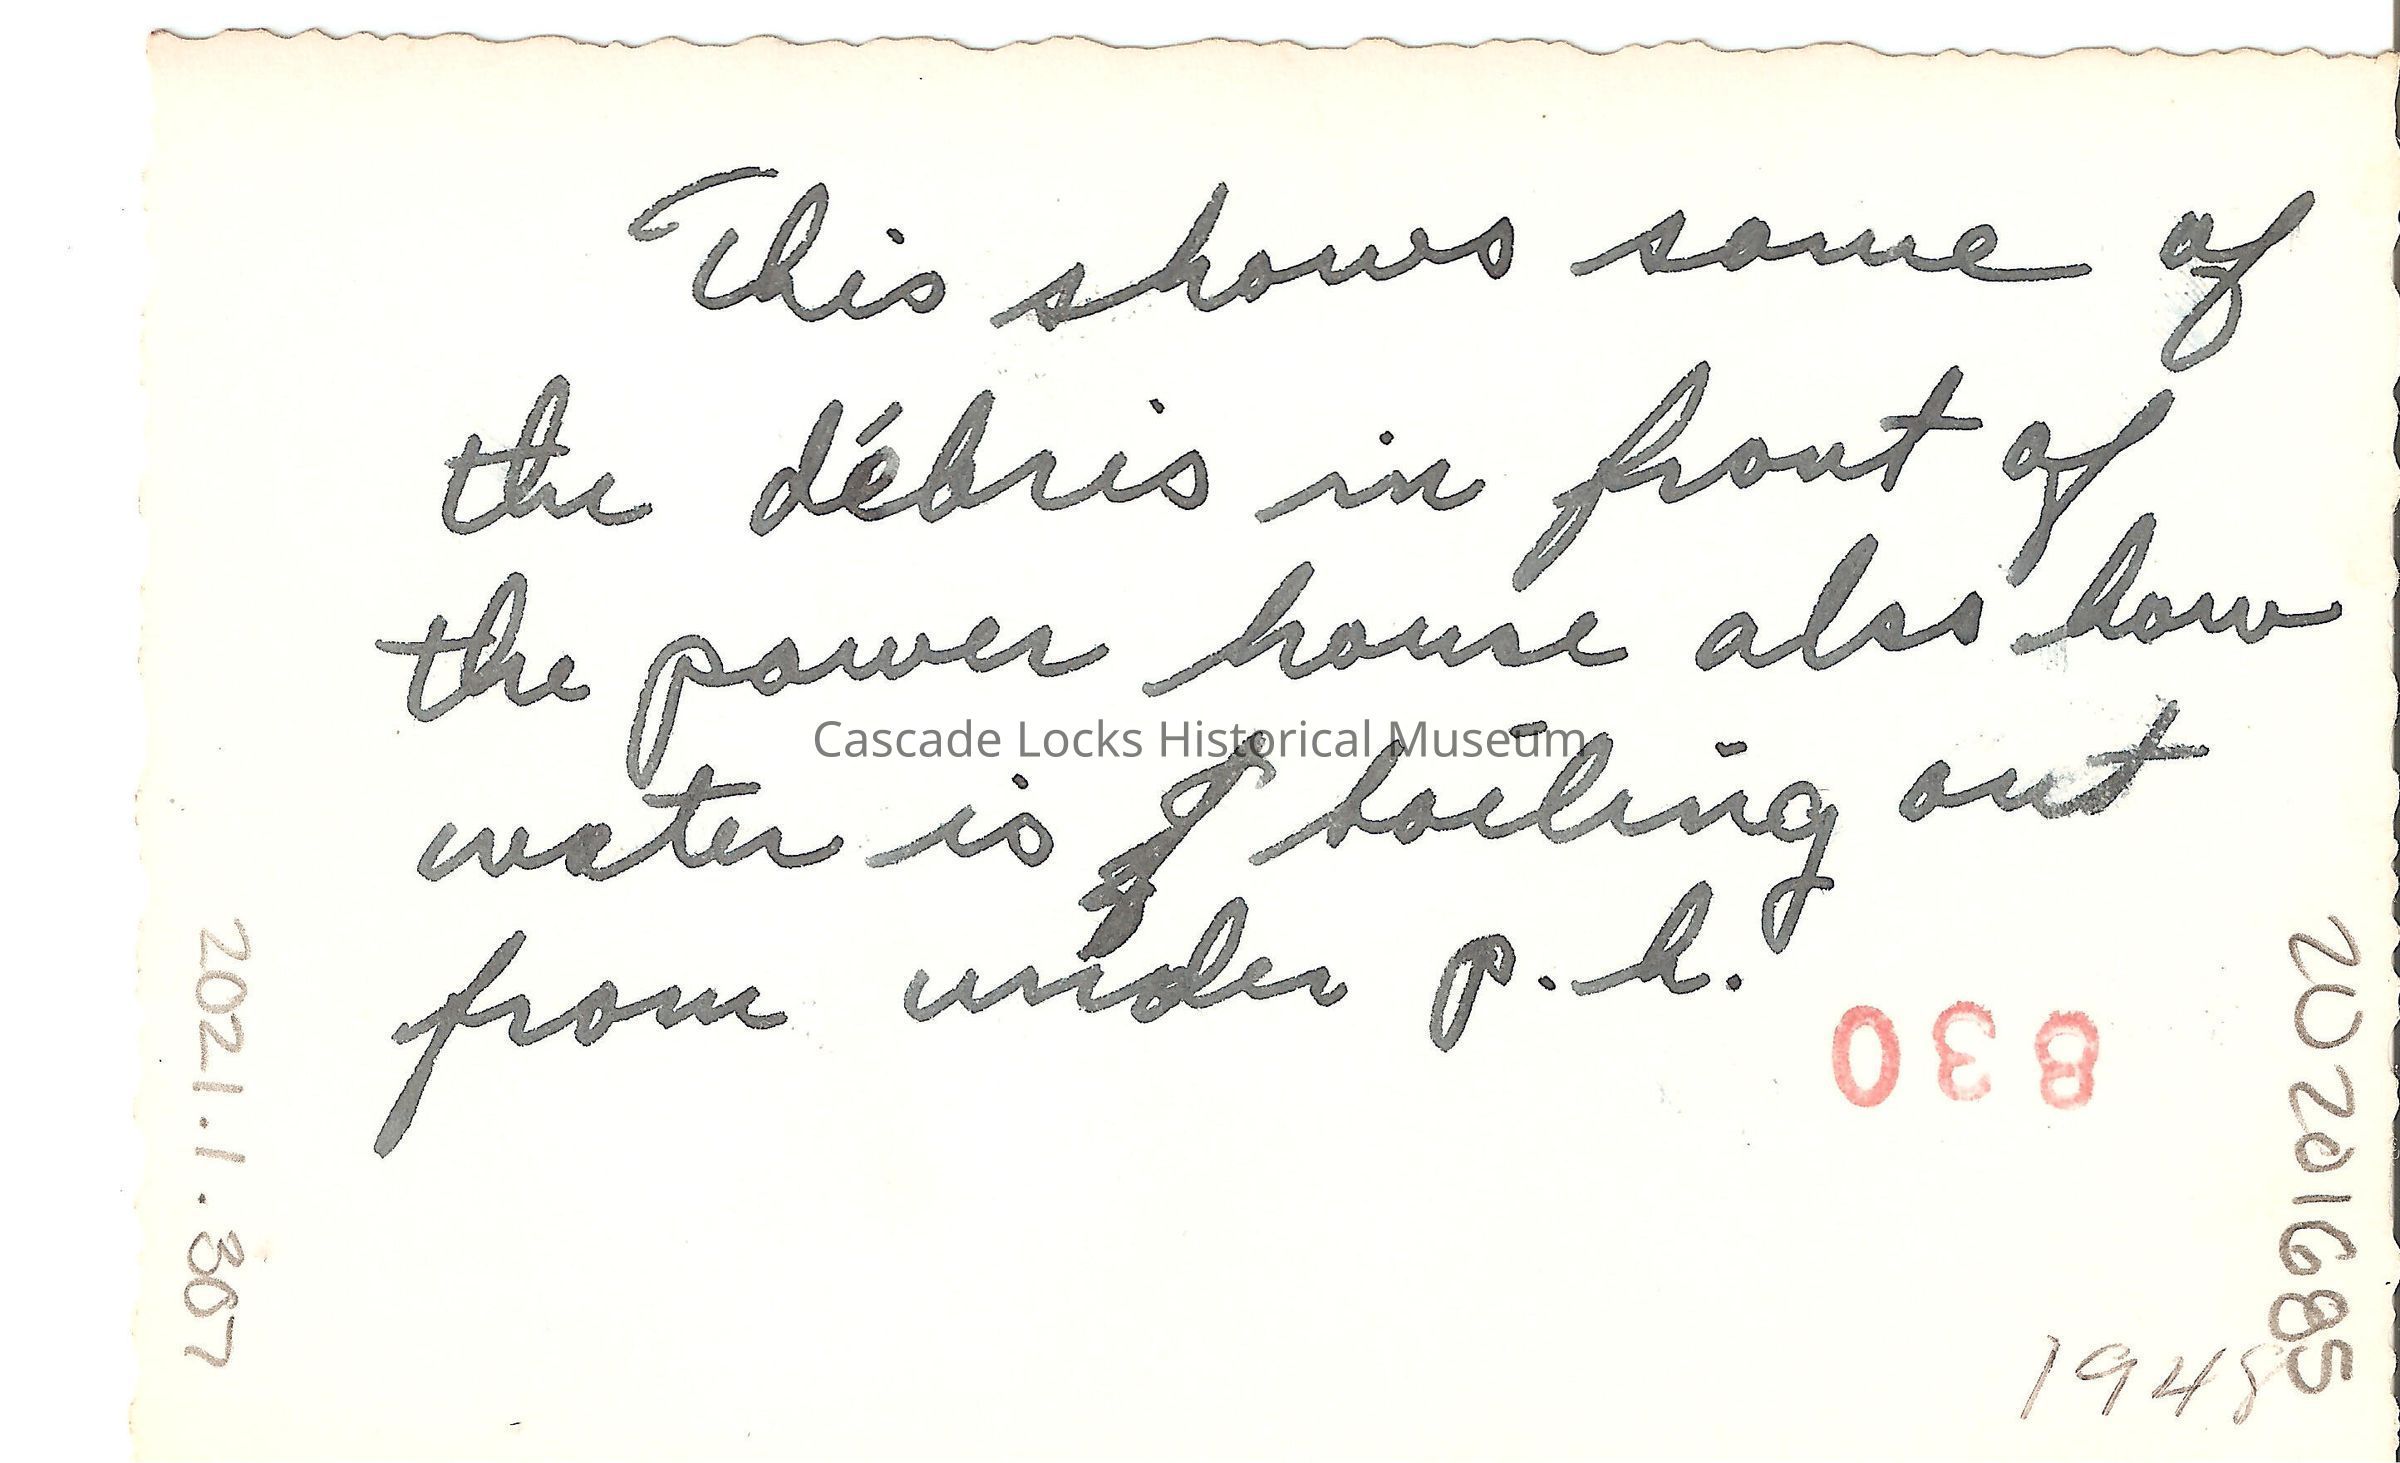 This shows some of
the débris in front of
the power house also how
Cascade Locks Historical Museum
water is boiling out
from under p.h.
830
2021.1.367
20201685
1948